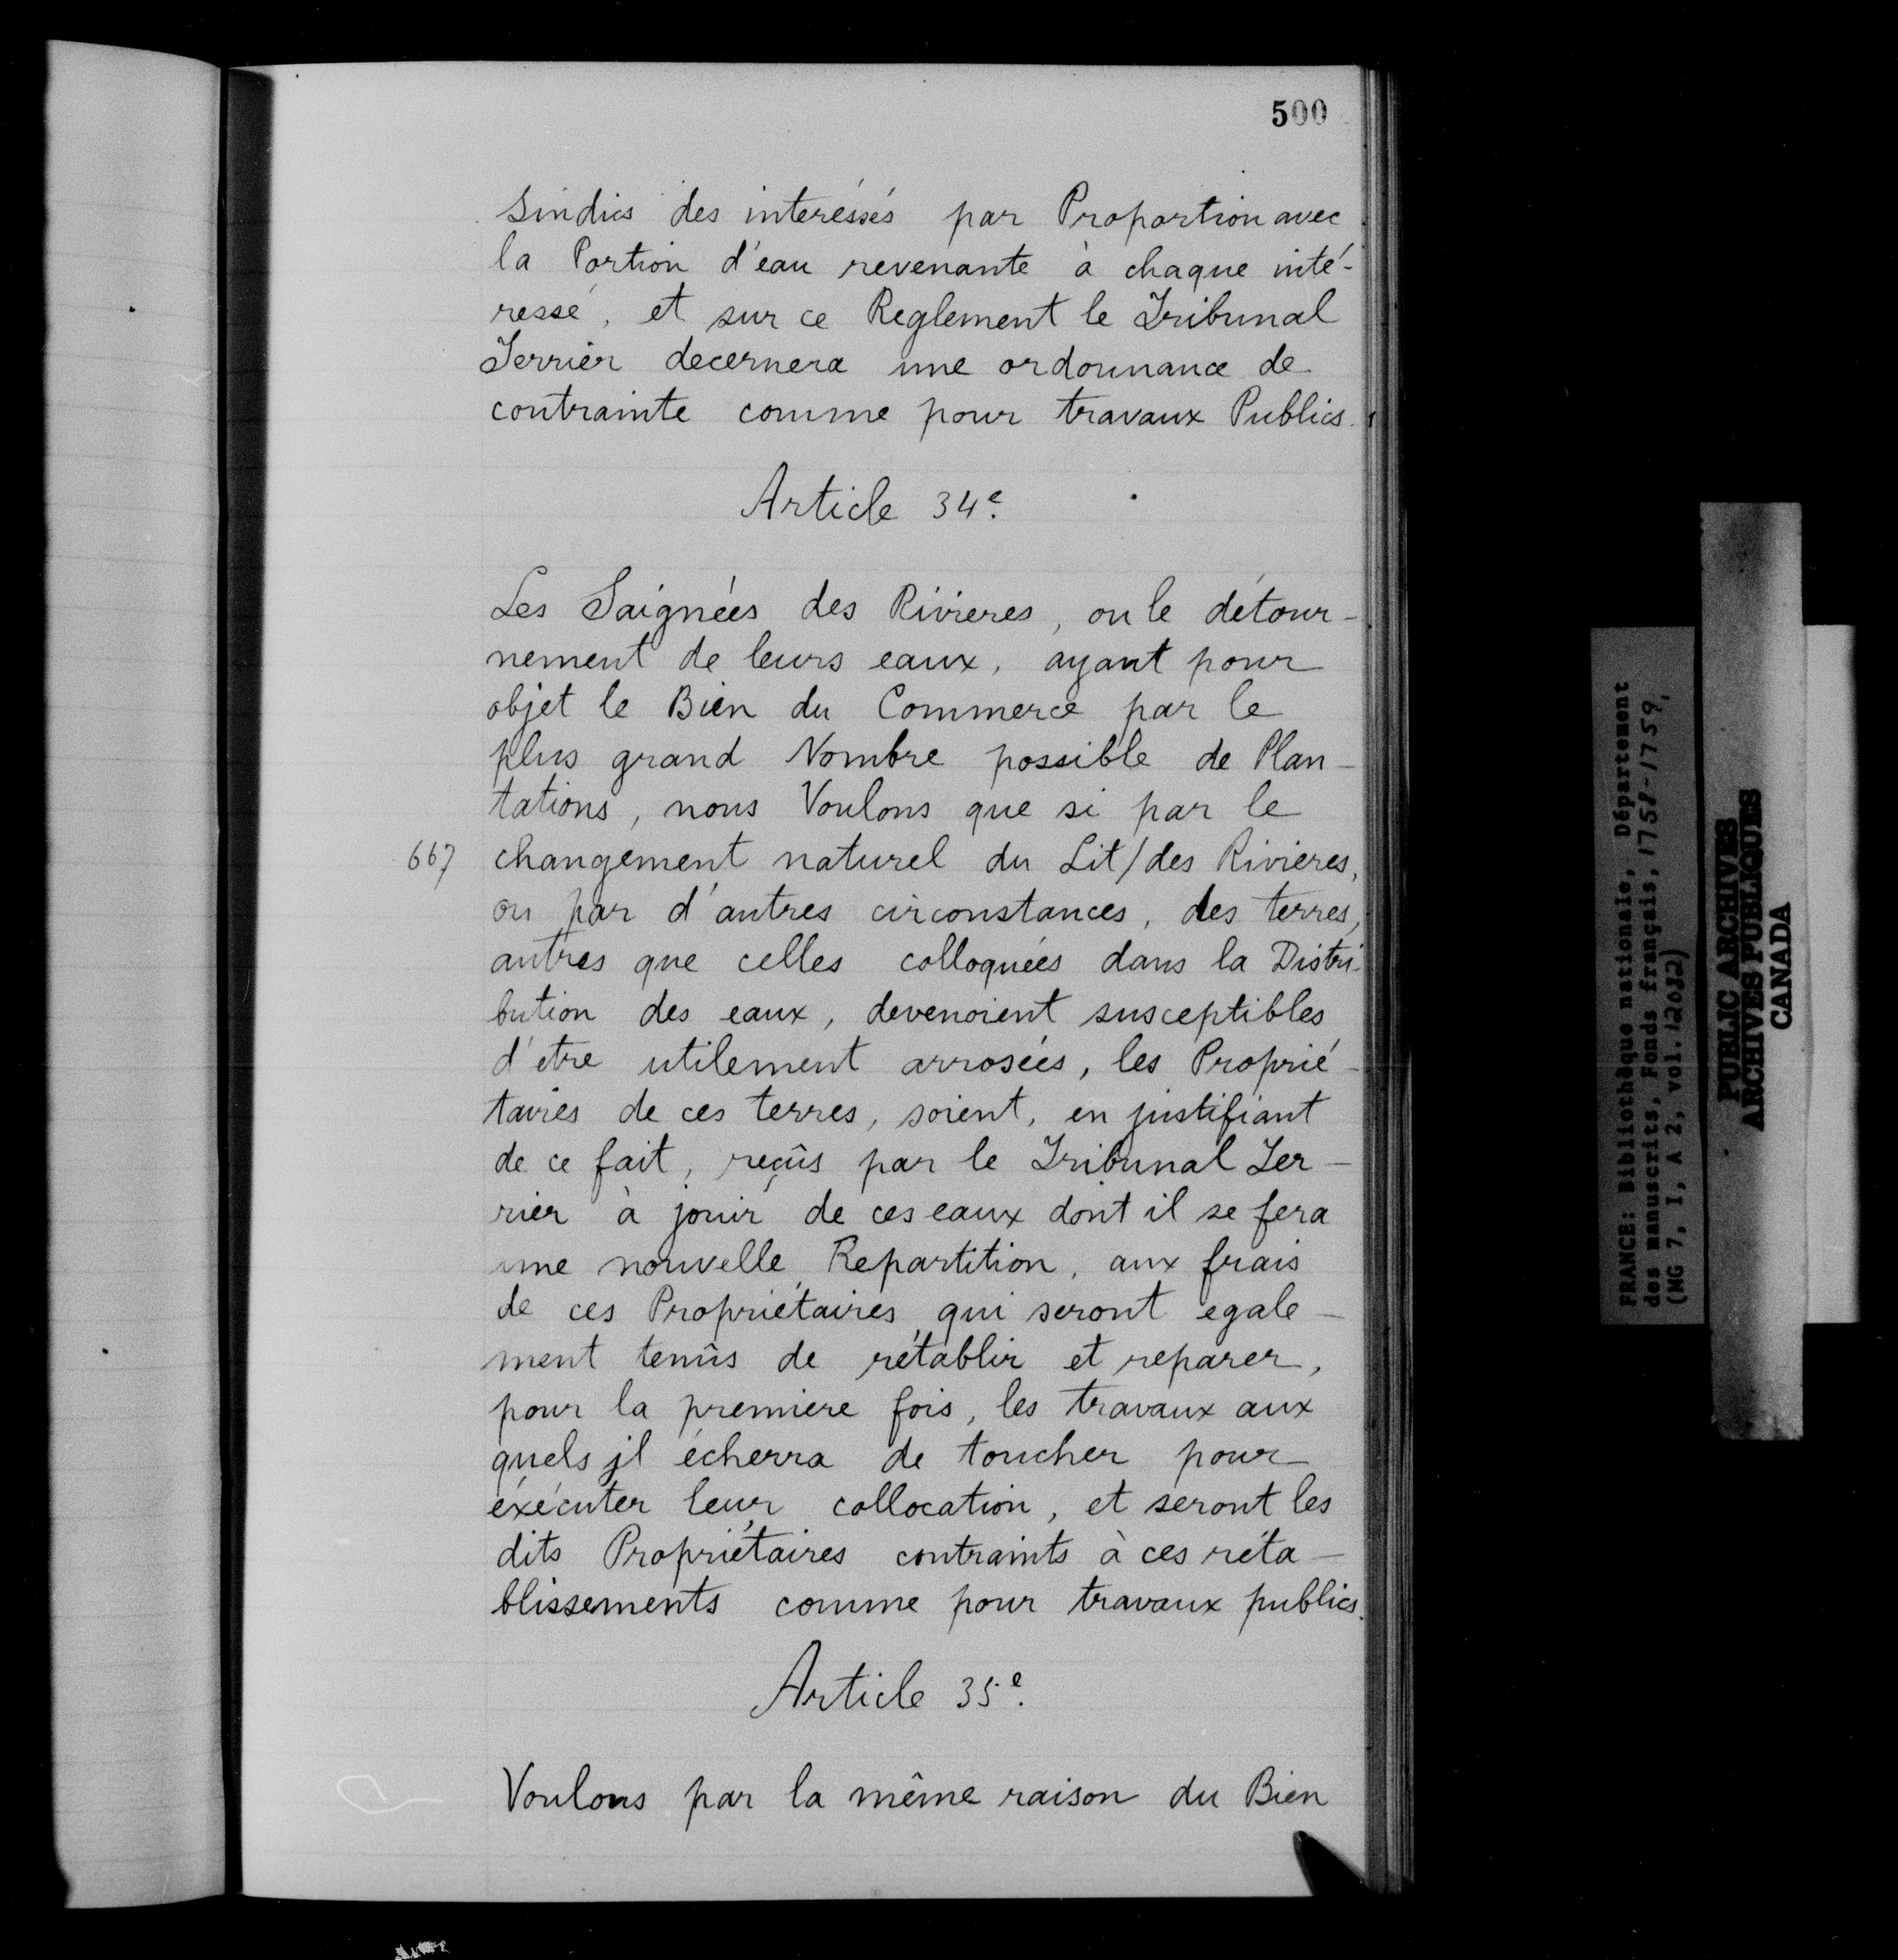 500
sindics des interéssés par Proportion avec
la Portion d'eau revenante à chaque inté-
ressé, et sur ce Reglement le Tribunal
Terrier decernera une ordonnance de
contrainte comme pour travaux Publics.
Article 34e.
Les Saignées des Rivieres, ou le détour-
nement de leurs eaux, ayant pour
objet le Bien du Commerce par le
plus grand Nombre possible de Plan-
tations, nous Voulons que si par le
667 changement naturel du Lit/des Rivieres,
ou par d'autres circonstances, des terres,
autres que celles colloquées dans la Distri-
bution des eaux, devenoient susceptibles
d'etre utilement arrosées, les Proprié-
taires de ces terres, soient, en justifiant
de ce fait, reçûs par le Tribunal Ter-
rier à jouir de ces eaux dont il se fera
une nouvelle Repartition, aux frais
de ces Propriétaires qui seront egale-
ment tenûs de rétablir et reparer,
pour la premiere fois, les travaux aux
quels jl écherra de toucher pour
éxécuter leur collocation, et seront les
dits Propriétaires contraints à ces réta-
blissements comme pour travaux publics.
Article 35e.
Voulons par la même raison du Bien
FRANCE: Bibliothèque nationale, Département
des manuscrits, Fonds français, 1758-1759,
(MG 7, I, A 2, vol. 12082)
PUBLIC ARCHIVES
ARCHIVES PUBLIQUES
CANADA